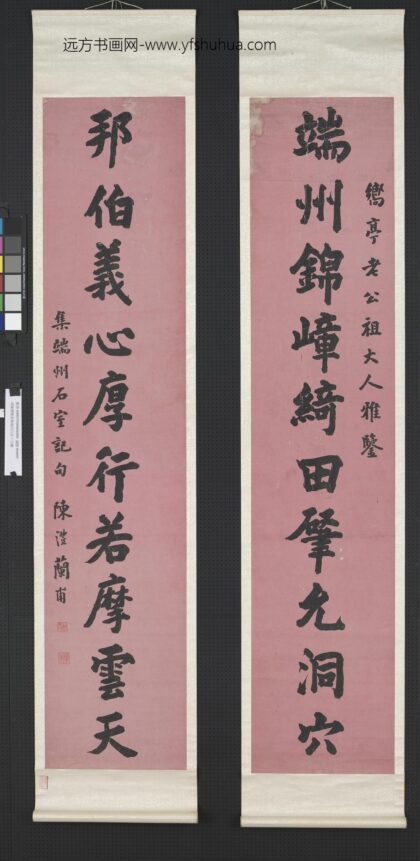 远方书画网-www.yfshuhua.com
嚮亭老公祖大人雅鑒
端州錦嶂綺田肇允洞穴
邦伯義心厚行若摩雲天
集端州石室記句 陳澧蘭甫